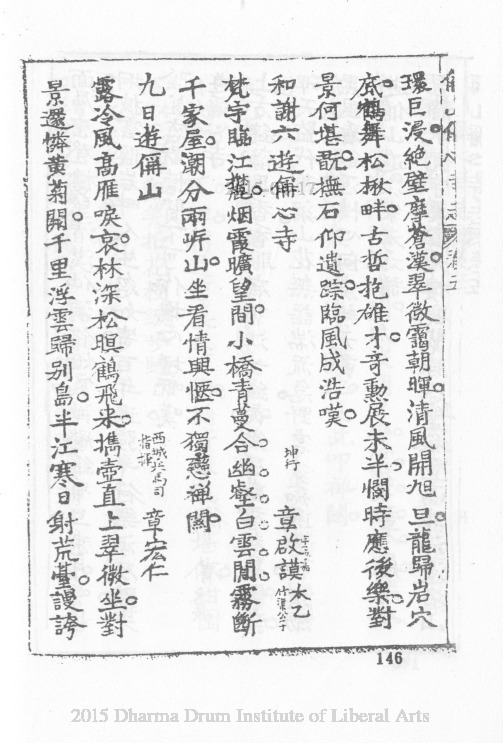 環巨浸絕壁摩蒼漢翠微靄朝暉清風開旭旦龍歸岩穴
底鶴舞松楸畔古哲抱雄才奇勳展未半憫時應後樂對
景何堪翫撫石仰遺踪臨風成浩嘆
和謝六遊偁心寺 坤行 章啟謨太乙 竹溪公子
梵宇臨江麓烟霞曠望間小橋青蔓合幽壑白雲閒霧斷
千家屋潮分兩岍山坐看情興愜不獨戀禅關
九日遊偁山 西城兵馬司指揮 章宏仁
露冷風高雁唳哀林深松暝鶴飛來攜壺直上翠微坐對
景還憐黄菊開千里浮雲歸別島半江寒日射荒臺謾誇
146
17
2015 Dharma Drum Institute of Liberal Arts